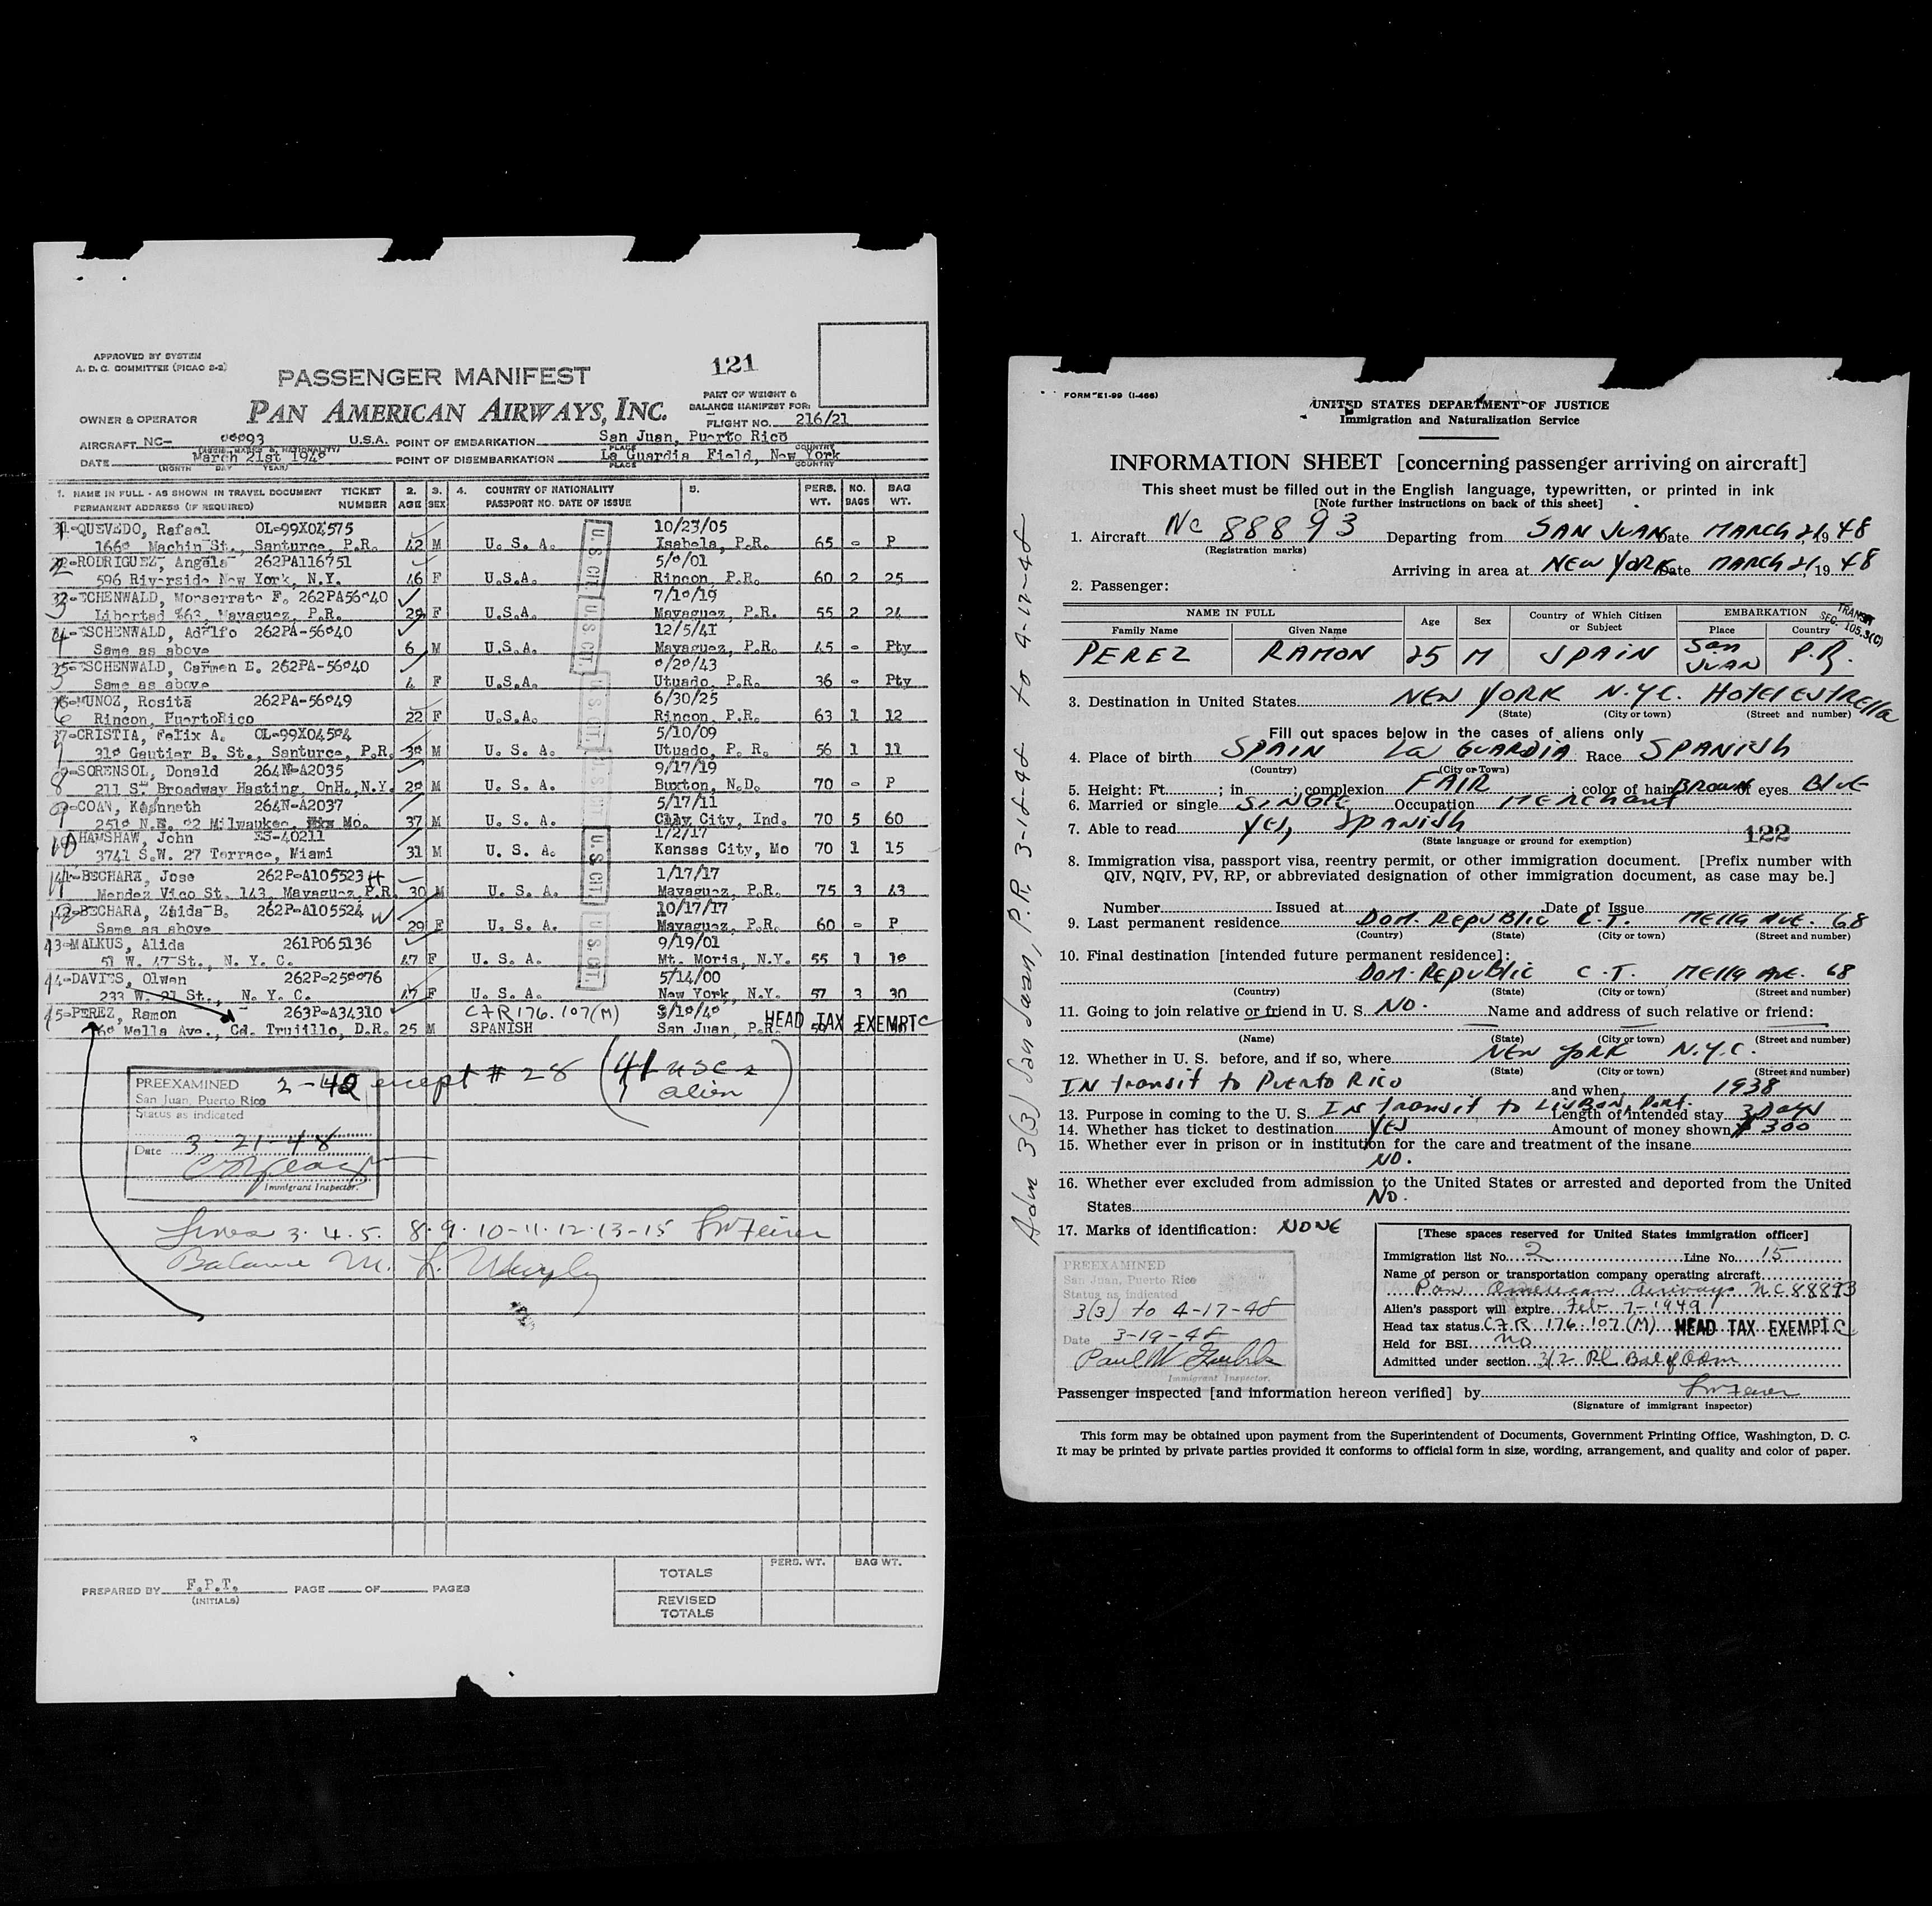 APPROVED BY SYSTEM
A. D. C. COMMITTEE (PICAO S-2)
121
PASSENGER MANIFEST
PART OF WEIGHT &
BALANCE MANIFEST FOR:
OWNER & OPERATOR
PAN AMERICAN AIRWAYS, INC.
FLIGHT NO. 216/21
AIRCRAFT NC- U.S.A. POINT OF EMBARKATION San Juan, Puerto Rico
DATE March 21st POINT OF DISEMBARKATION La Guardia Field, New York
(MONTH DAY YEAR) PLACE COUNTRY
1. NAME IN FULL - AS SHOWN IN TRAVEL DOCUMENT TICKET 2. 3. 4. COUNTRY OF NATIONALITY 5. PERS. NO. BAG
PERMANENT ADDRESS (IF REQUIRED) NUMBER AGE SEX PASSPORT NO. DATE OF ISSUE WT. BAGS WT.
QUEVEDO, Rafael OL-99X04575 10/23/05
Machin St., Santurce, P.R. 42 M U. S. A. Isabela, P.R. 65 - P
RODRIGUEZ, Angela 262PA116751
596 Riverside New York, N.Y. 46 F U.S.A. Rincon, P.R. 60 2 25
Monserrate F. 7/10/19
Libertad Mayaguez, P.R. F U.S.A. Mayaguez, P.R. 55 2 24
ESCHENWALD, Adolfo 12/5/41
Same as above 6 M U.S.A. Mayaguez, P.R. 45 - Pty
35-ESCHENWALD, Carmen E.
Same as above 4 F U.S.A. Utuado, P.R. 36 - Pty
36-MUNOZ, Rosita 6/30/25
Rincon, PuertoRico 22 F U.S.A. Rincon, P.R. 63 1 12
37-CRISTIA, Felix A. 5/10/09
Gautier B. St., Santurce, P.R. M U. S. A. Utuado, P. R. 56 1 11
SORENSOL, Donald 264N-A2035 9/17/19
211 St. Broadway Hasting, OnH., N.Y. M U. S. A. Buxton, N.D. 70 - P
COAN, Kenneth 264N-A2037 5/17/11
N.E. Milwaukee, Mo. 37 M U. S. A. Clay City, Ind. 70 5 60
HAMSHAW, John ES-40211 1/2/17
3741 S.W. 27 Terrace, Miami 31 M U. S. A. Kansas City, Mo 70 1 15
BECHARA, Jose 262P-A105523 1/17/17
Mendez Vico St. 143, Mayaguez, P.R. 30 M U. S. A. Mayaguez, P.R. 75 3 43
BECHARA, Zaida B. 262P-A105524 10/17/17
Same as above 29 F U. S. A. Mayaguez, P.R. 60 - P
43-MALKUS, Alida 261P065136 9/19/01
51 W. 47 St., N. Y. C. 47 F U. S. A. Mt. Moris, N.Y. 55 1
44-DAVIES, Olwen 5/14/00
233 W. 21 St., N. Y. C. 47 F U. S. A. New York, N.Y. 57 3 30
45-PEREZ, Ramon 263P-A34310 CFR 176.107(M)
Mella Ave., Cd. Trujillo, D.R. 25 M SPANISH San Juan, P.R. HEAD TAX EXEMPT C
U.S. CIT.
U.S. CIT.
U.S. CIT.
U.S. CIT.
U.S. CIT.
U.S. CIT.
PREEXAMINED
San Juan, Puerto Rico
Status as indicated
except # 28 (41 USC 2
1 alien)
Date 3-21-48
Immigrant Inspector.
Lines 3. 4. 5. 8. 9. 10-11. 12. 13-15
Balance M. L. Murphy
PREPARED BY F.P.T. PAGE OF PAGES
(INITIALS)
PERS. WT. BAG WT.
TOTALS
REVISED
TOTALS
FORM I-99 (I-466)
UNITED STATES DEPARTMENT OF JUSTICE
Immigration and Naturalization Service
INFORMATION SHEET [concerning passenger arriving on aircraft]
This sheet must be filled out in the English language, typewritten, or printed in ink
[Note further instructions on back of this sheet]
1. Aircraft NC 88893 Departing from SAN JUAN Date MARCH 21, 1948
(Registration marks)
Arriving in area at NEW YORK Date MARCH 21, 1948
2. Passenger:
NAME IN FULL Age Sex Country of Which Citizen or Subject EMBARKATION
Family Name Given Name Place Country
TRANSIT
SEC. 105.3(C)
PEREZ RAMON 25 M SPAIN San JUAN P.R.
3. Destination in United States NEW YORK N.Y.C. Hotel ESTRElla
(State) (City or town) (Street and number)
Fill out spaces below in the cases of aliens only
4. Place of birth SPAIN La GUARDIA Race SPANISh
(Country) (City or Town)
5. Height: Ft. ; in ; complexion FAIR ; color of hair BROWN of eyes BluE
6. Married or single SINGlE Occupation MERChant
7. Able to read YES, SpANiSh
(State language or ground for exemption)
122
8. Immigration visa, passport visa, reentry permit, or other immigration document. [Prefix number with
QIV, NQIV, PV, RP, or abbreviated designation of other immigration document, as case may be.]
Number Issued at Date of Issue
9. Last permanent residence DOM. REpublic C.T. MEllA AVE. 68
(Country) (State) (City or town) (Street and number)
10. Final destination [intended future permanent residence]:
DOM. REpublic C.T. MEllA AVE. 68
(Country) (State) (City or town) (Street and number)
11. Going to join relative or friend in U. S. NO. Name and address of such relative or friend:
(Name) (State) (City or town) (Street and number)
12. Whether in U. S. before, and if so, where NEW YORK N.Y.C.
(State) (City or town) (Street and number)
IN transit to PuErto Rico and when 1938
13. Purpose in coming to the U. S. IN transit to LISBON, Port. Length of intended stay 3 Days
14. Whether has ticket to destination YES Amount of money shown $ 300
15. Whether ever in prison or in institution for the care and treatment of the insane
NO.
16. Whether ever excluded from admission to the United States or arrested and deported from the United
States NO.
17. Marks of identification: NONE
PREEXAMINED
San Juan, Puerto Rico
Status as indicated
3(3) to 4-17-48
Date 3-19-48
Paul W
Immigrant Inspector.
[These spaces reserved for United States immigration officer]
Immigration list No. 2 Line No. 15
Name of person or transportation company operating aircraft
Pan American Airways NC 88893
Alien's passport will expire Feb 7-1949
Head tax status CFR 176.107 (M) HEAD TAX EXEMPT C
Held for BSI no
Admitted under section 3/2 Pl Bal of Adm
Passenger inspected [and information hereon verified] by
(Signature of immigrant inspector)
This form may be obtained upon payment from the Superintendent of Documents, Government Printing Office, Washington, D. C.
It may be printed by private parties provided it conforms to official form in size, wording, arrangement, and quality and color of paper.
Adm 3(3) San Juan, P.R. 3-18-48 to 4-17-48